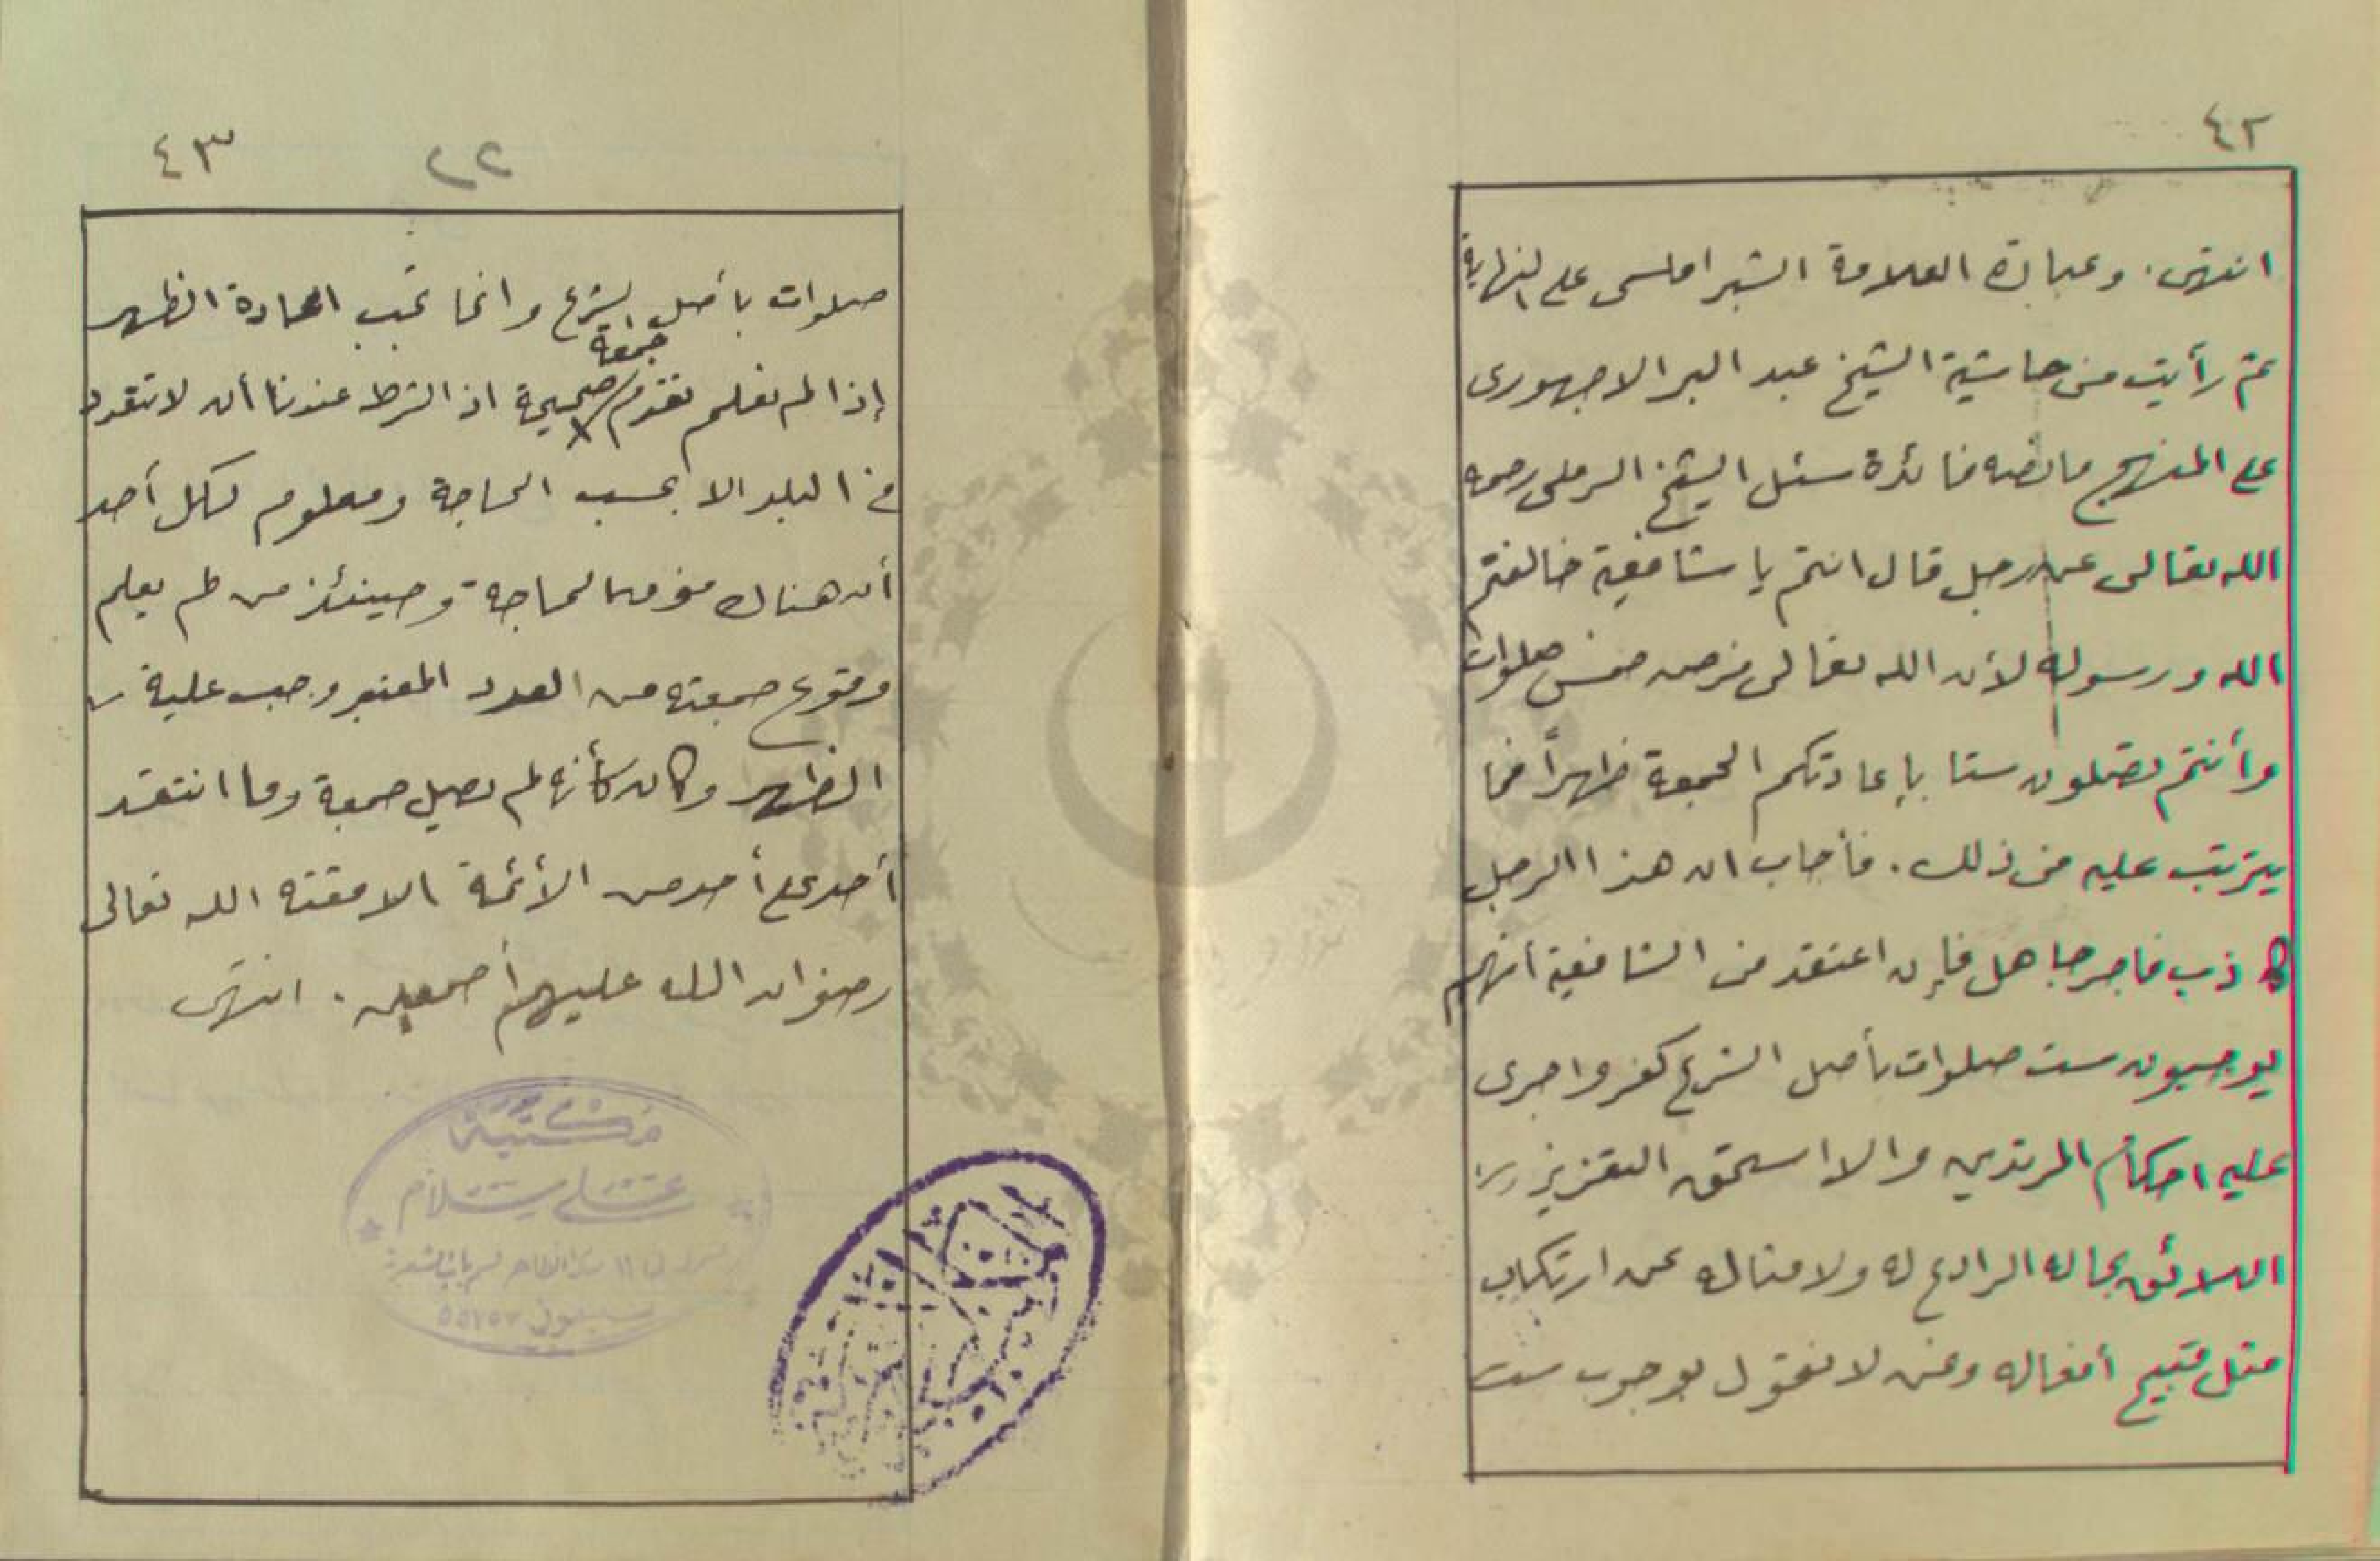 ٤٢
انتهى. وعبارة العلامة الشبراملسى على النهاية
ثم رأيت فى حاشية الشيخ عبد البر الاجهورى
على المنهج ما نصه فائدة سئل الشيخ الرملى رحمه
الله تعالى عن رجل قال انتم يا شافعية خالفتم
الله ورسوله لأن الله تعالى فرض خمس صلوات
وأنتم تصلون ستا بإعادتكم الجمعة ظهراً فما
يترتب عليه فى ذلك. فأجاب ان هذا الرجل
كاذب فاجر جاهل فإن اعتقد فى الشافعية انهم
يوجبون ست صلوات بأصل الشرع كفر واجرى
عليه احكام المرتدين والا استحق التعزيز
اللائق بحاله الرادع له ولامثاله عن ارتكاب
مثل قبيح أفعاله ونحن لا نقول بوجوب ست
٤٣
٢٢
صلوات بأصل الشرع وانما تجب اعادة الظهر
إذا لم نعلم تقدم جمعة صحيحة اذ الشرط عندنا أن لا تتعدد
فى البلد الا بحسب الحاجة ومعلوم لكل أحد
أن هناك فوق الحاجة وحينئذ من لم يعلم
وقوع جمعته من العدد المعتبر وجب عليه
الظهر وكان كأنه لم يصل جمعة وما انتقد
أحد على أحد من الأئمة الا مقته الله تعالى
رضوان الله عليهم أجمعين. انتهى
مكتبة